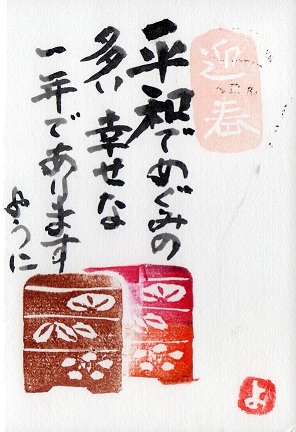 迎春
平和でめぐみの
多い幸せな
一年であります
ように
よ